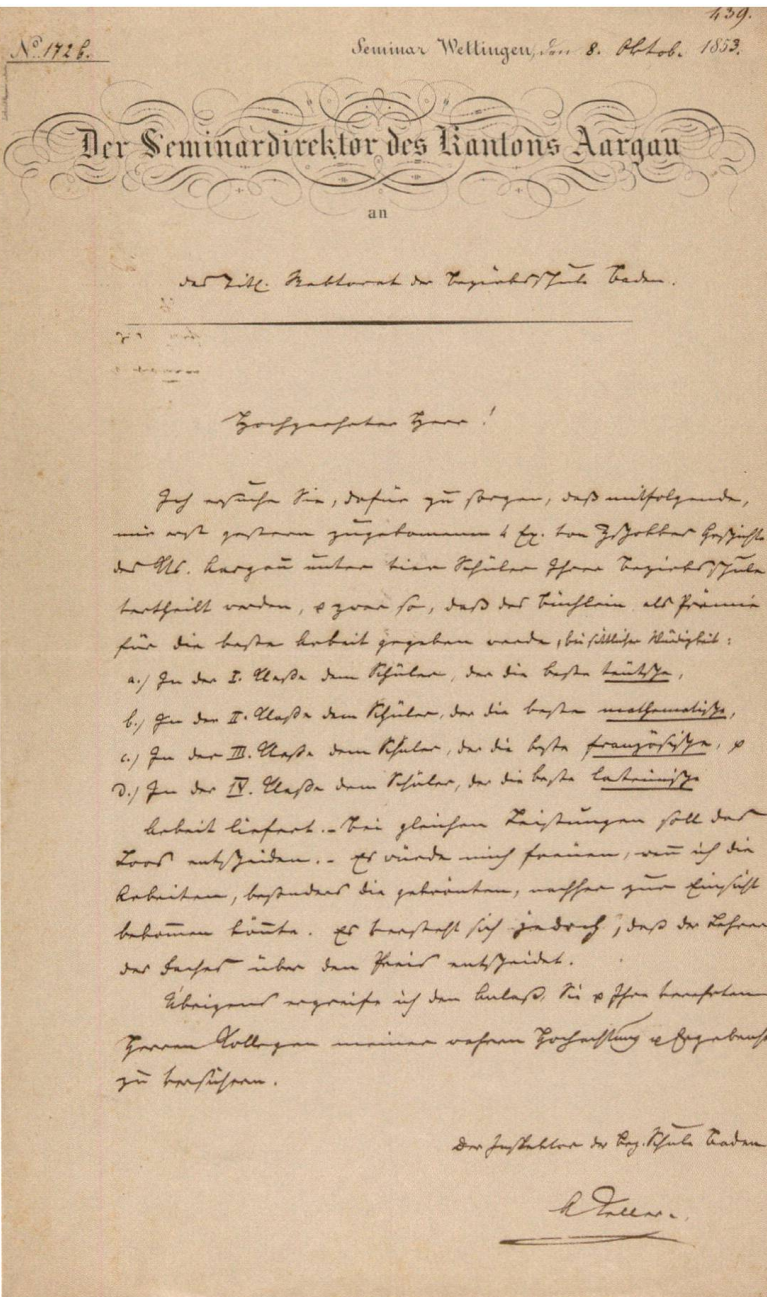 439.
No. 172 b.
Seminar Wettingen, den 8. Oktob. 1853.
Der Seminardirektor des Kantons Aargau
an
das Titl. Rektorat der Bezirksschule Baden.
Hochgeehrter Herr!
Ich ersuche Sie, dafür zu sorgen, daß mitfolgende,
mir erst gestern zugekommenen 4 Ex. von Zschokkes Geschichte
des Kts. Aargau unter vier Schüler Ihrer Bezirksschule
vertheilt werden, & zwar so, daß das Büchlein als Prämie
für die beste Arbeit gegeben werde, bei sittlicher Würdigkeit:
a.) In der I. Klaße dem Schüler, der die beste teutsche,
b.) In der II. Klaße dem Schüler, der die beste mathematische,
c.) In der III. Klaße dem Schüler, der die beste französische, &
d.) In der IV. Klaße dem Schüler, der die beste lateinische
Arbeit liefert. – Bei gleichen Leistungen soll das
Loos entscheiden. – Es würde mich freuen, wenn ich die
Arbeiten, besonders die gekrönten, nachher zur Einsicht
bekommen könnte. Es versteht sich jedoch, daß der Lehrer
des Faches über den Preis entscheidet.
Übrigens ergreife ich den Anlaß, Sie & Ihre
Herren Kollegen meiner wahren Hochachtung & Ergebenheit
zu versichern.
Der Inspektor der Bez. Schule Baden
A Keller.